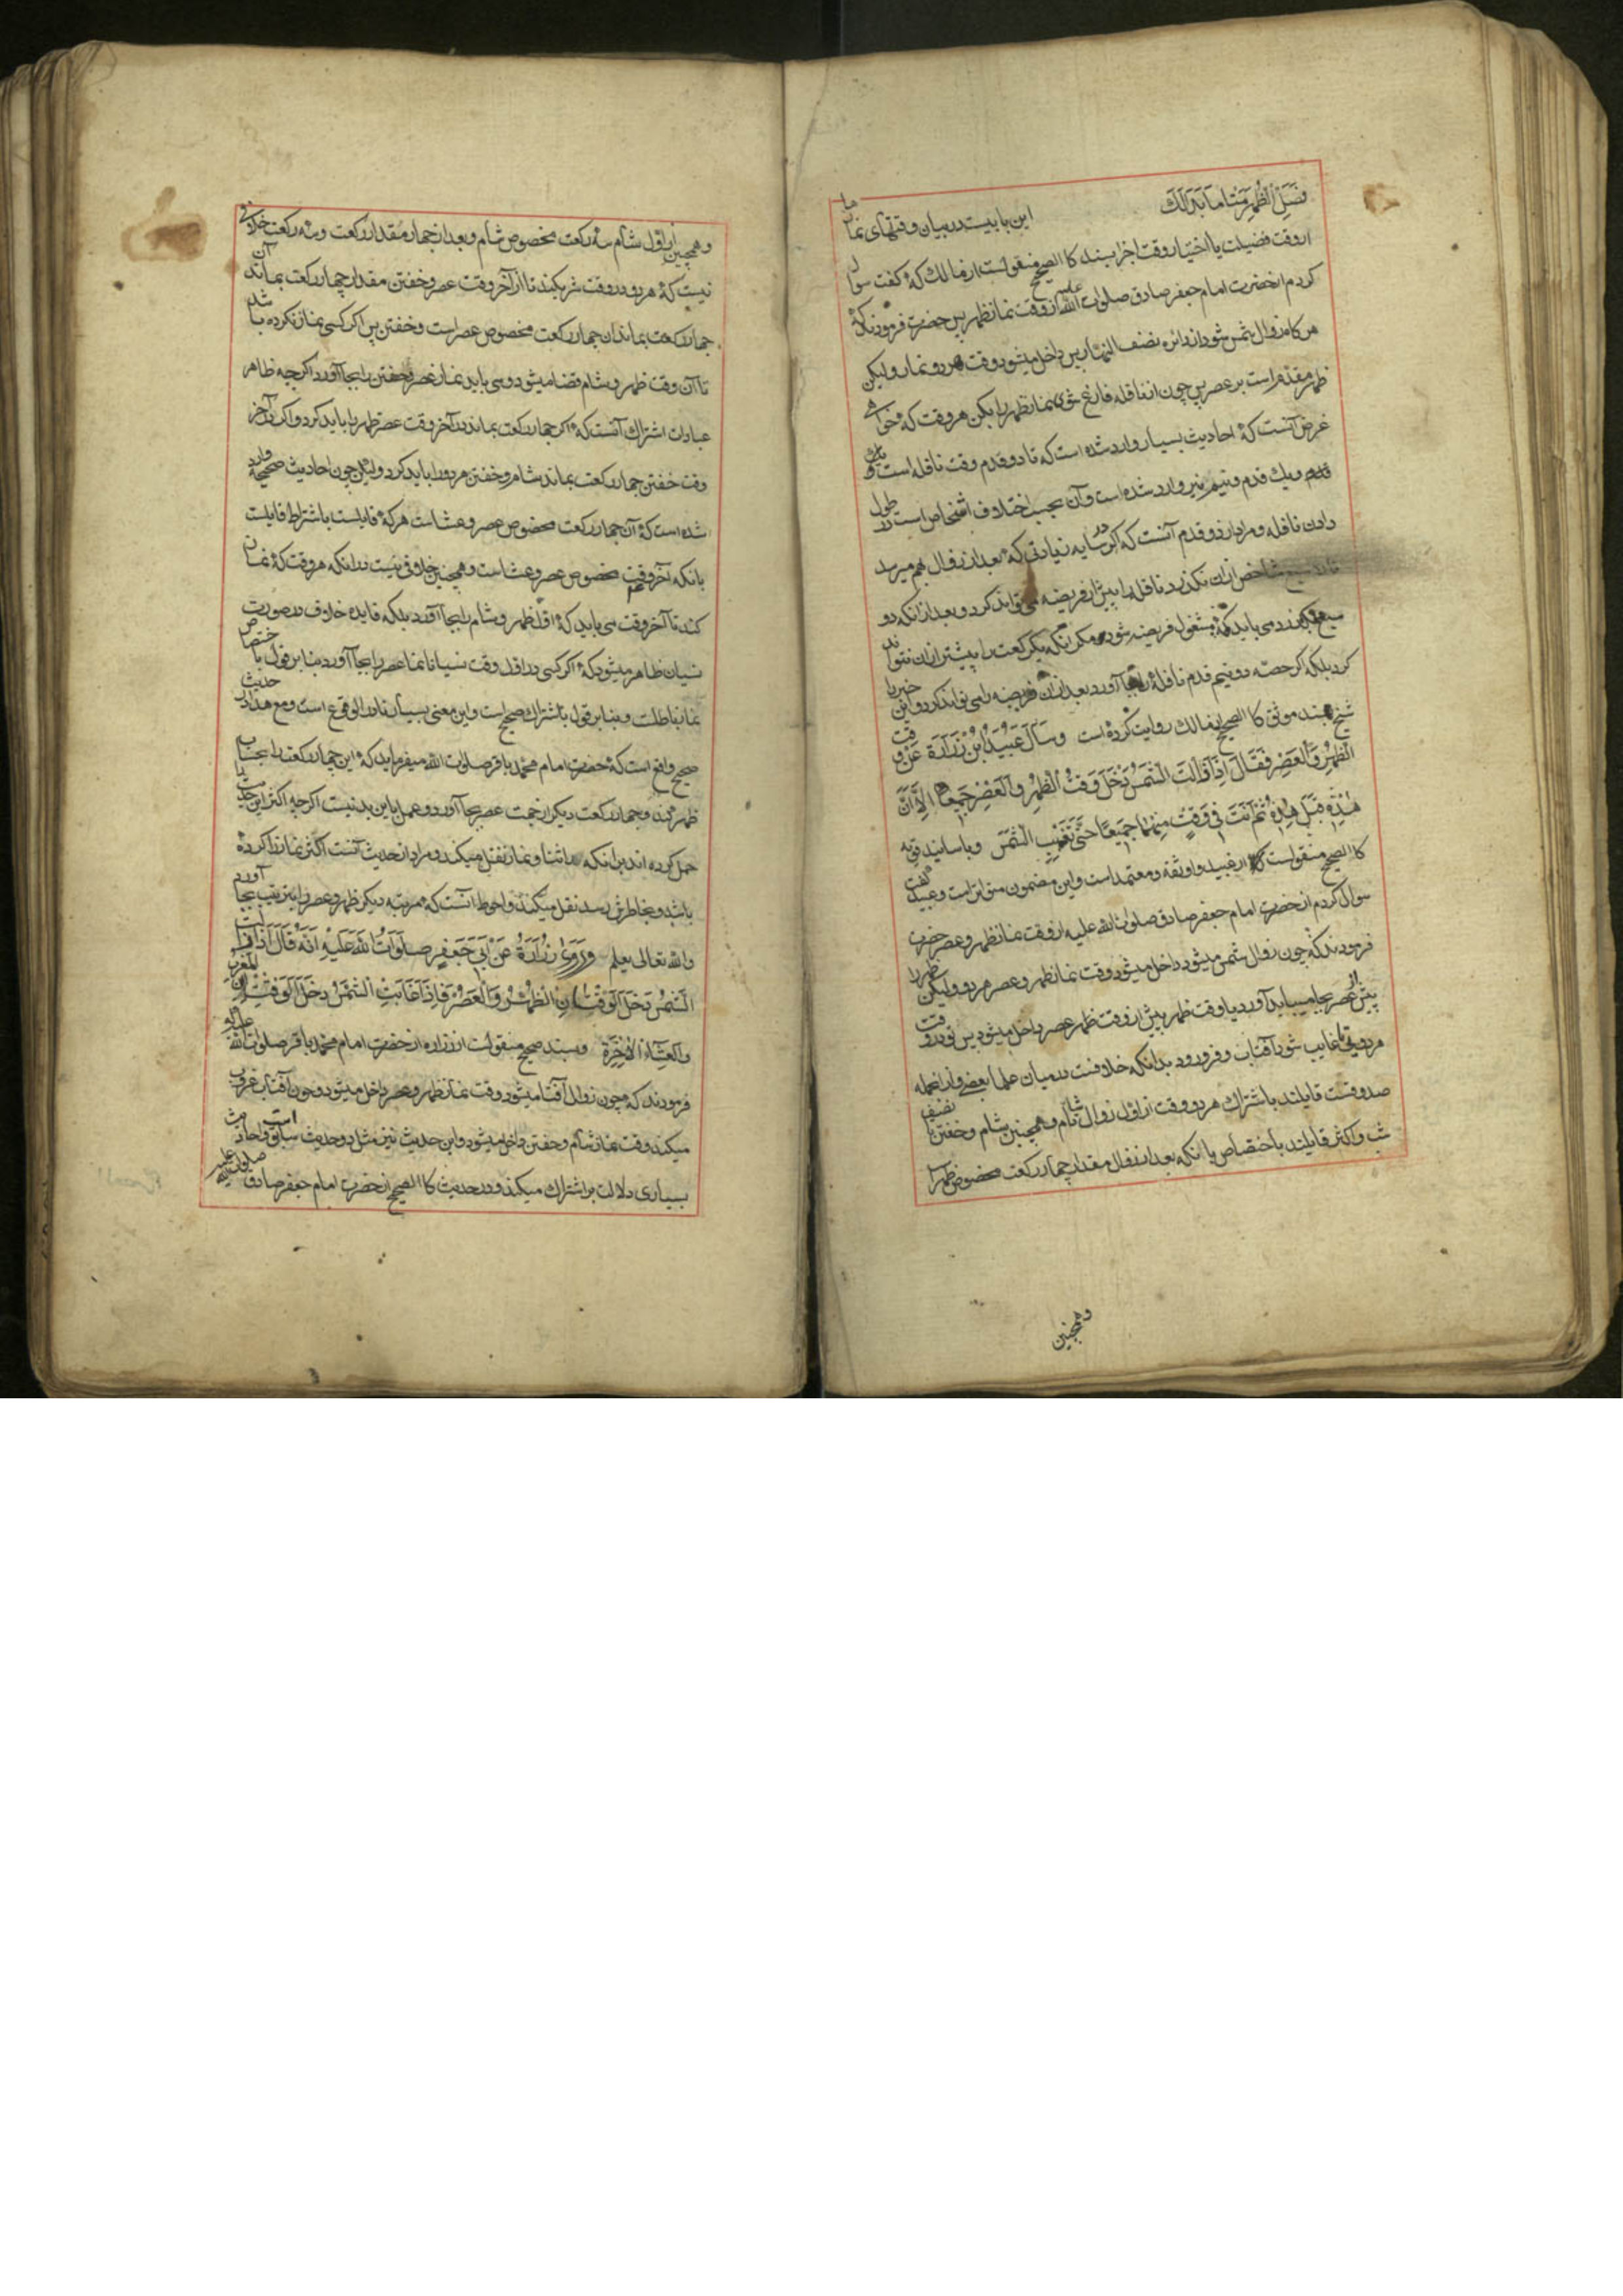 فصل الظهر متی ما بدالك این بابیست در بیان وقتهای نمازها
از وقت فضیلت یا اختیار وقت اجزا بسند کالصحیح منقولست از مالك که گفت سوال
کردم از حضرت امام جعفر صادق صلوات الله علیه از وقت نماز ظهر پس حضرت فرمودند که
هر کاه زوال شمس شود از دائره نصف النهار پس داخل میشود وقت هر دو نماز و لیکن
ظهر مقدم است بر عصر پس چون از نافله فارغ شوی نماز ظهر را بکن هر وقت که خواهی
غرض آنست که احادیث بسیار وارد شده است که تا دو قدم وقت نافله است و یك
قدم و یك قدم و نیم نیز وارد شده است و آن بحسب اختلاف اشخاص است در طول
دادن نافله و مراد از دو قدم آنست که اکر در سایه زیادتی که بعد از زوال بهم میرسد
تا دو سبع شاخص ازان نکذرد نافله را پیش از فریضه می تواند کرد و بعد از انکه دو
سبع بکذرد می باید که مشغول فریضه شود مکر انکه یک رکعت را پیشتر ازان نتواند
کرد بلکه اکر حصه دو نیم قدم نافله را بجا آورد بعد ازان فریضه را می تواند کرد و این خبر را
شیخ بسند موثق کالصحیح از مالك روایت کرده است وسأل عبید بن زرارة عن وقت
الظهر والعصر فقال اذا زالت الشمس دخل وقت الظهر والعصر جمیعا الا ان
هذه قبل هذه ثم انت فی وقت منهما جمیعا حتی تغیب الشمس و باسانید قویه
کالصحیح منقولست که از عبید و او ثقه و معتمد است و این مضمون متواتر است و عبید گفت
سوال کردم از حضرت امام جعفر صادق صلوات الله علیه از وقت نماز ظهر و عصر حضرت
فرمودند که چون زوال شمس میشود داخل میشود وقت نماز ظهر و عصر هر دو و لیکن ظهر را
پیش از عصر بجا میباید آورد یا وقت ظهر پیش از وقت ظهر عصر داخل میشود پس تو در وقت
هر دوئی تا غایب شود آفتاب و فرو رود بدانکه خلافست در میان علما بعضی و از انجمله
صدوقست قایلند باشتراك هر دو وقت از اول زوال تا شام و همچنین شام و خفتن تا نصف
شب و اکثر قایلند باختصاص یا انکه بعد از زوال مقدار چهار رکعت مخصوص ظهر است
وهمچنین
وهمچنین از اول شام سه رکعت مخصوص شام و بعد از چهار مقدار رکعت و سه رکعت خلافی
نیست که هر دو در وقت شریکند تا از آخر وقت عصر و خفتن مقدار چهار رکعت بماند آن
چهار رکعت بماند ان چهار رکعت مخصوص عصر است و خفتن پس اکر کسی نماز نکرده باشد
تا آن وقت ظهر و شام قضا میشود و می باید نماز عصر و خفتن را بجا آورد اکرچه ظاهر
عبارات اشتراك آنست که اکر چهار رکعت بماند در آخر وقت عصر ظهر را باید کرد و اکر در آخر
وقت خفتن چهار رکعت بماند شام و خفتن هر دو را باید کرد و لیکن چون احادیث صحیحه وارد
شده است که آن چهار رکعت مخصوص عصر و عشاست هر که قایلست باشتراط قایلست
بانکه آخر وقت مخصوص عصر و عشاست و همچنین خلافی نیست در انکه هر وقت که نماز
کند تا آخر وقت می باید که اولا ظهر و شام را بجا آورد بلکه فایده خلاف در صورت
نسیان ظاهر میشود که اکر کسی در اول وقت نسیانا نماز عصر را بجا آورد بنا بر قول باختصاص
نماز باطلست و بنا بر قول باشتراك صحیح است و این معنی بسیار نادر الوقوع است و مع هذا در حدیث
صحیح واقع است که حضرت امام محمد باقر صلوات الله میفرماید که این چهار رکعت را بحساب
ظهر کند و چهار رکعت دیکر از جهت عصر بجا آورد و عمل باین بد نیست اکرچه اکثر این حدیث را
حمل کرده اند برانکه در اثنا و نماز نقل میکند و مراد از حدیث آنست اکثر نماز را کرده
باشد و بخاطرش رسد نقل میکند و احوط آنست که مرتبه دیکر ظهر و عصر را بترتیب بجا آورد
والله تعالی یعلم وروی زرارة عن ابی جعفر صلوات الله علیه انه قال اذا زالت
الشمس دخل الوقتان الظهر والعصر فاذا غابت الشمس دخل الوقتان المغرب
والعشاء الاخرة و بسند صحیح منقولست از زراره از حضرت امام محمد باقر صلوات الله علیه که
فرمودند که چون زوال آفتاب میشود وقت نماز ظهر و عصر داخل میشود و چون آفتاب غروب
میکند وقت نماز شام و خفتن داخل میشود و این حدیث نیز مثل دو حدیث سابق است و احادیث
بسیاری دلالت بر اشتراك میکند و در حدیث کالصحیح از حضرت امام جعفر صادق صلوات الله علیه